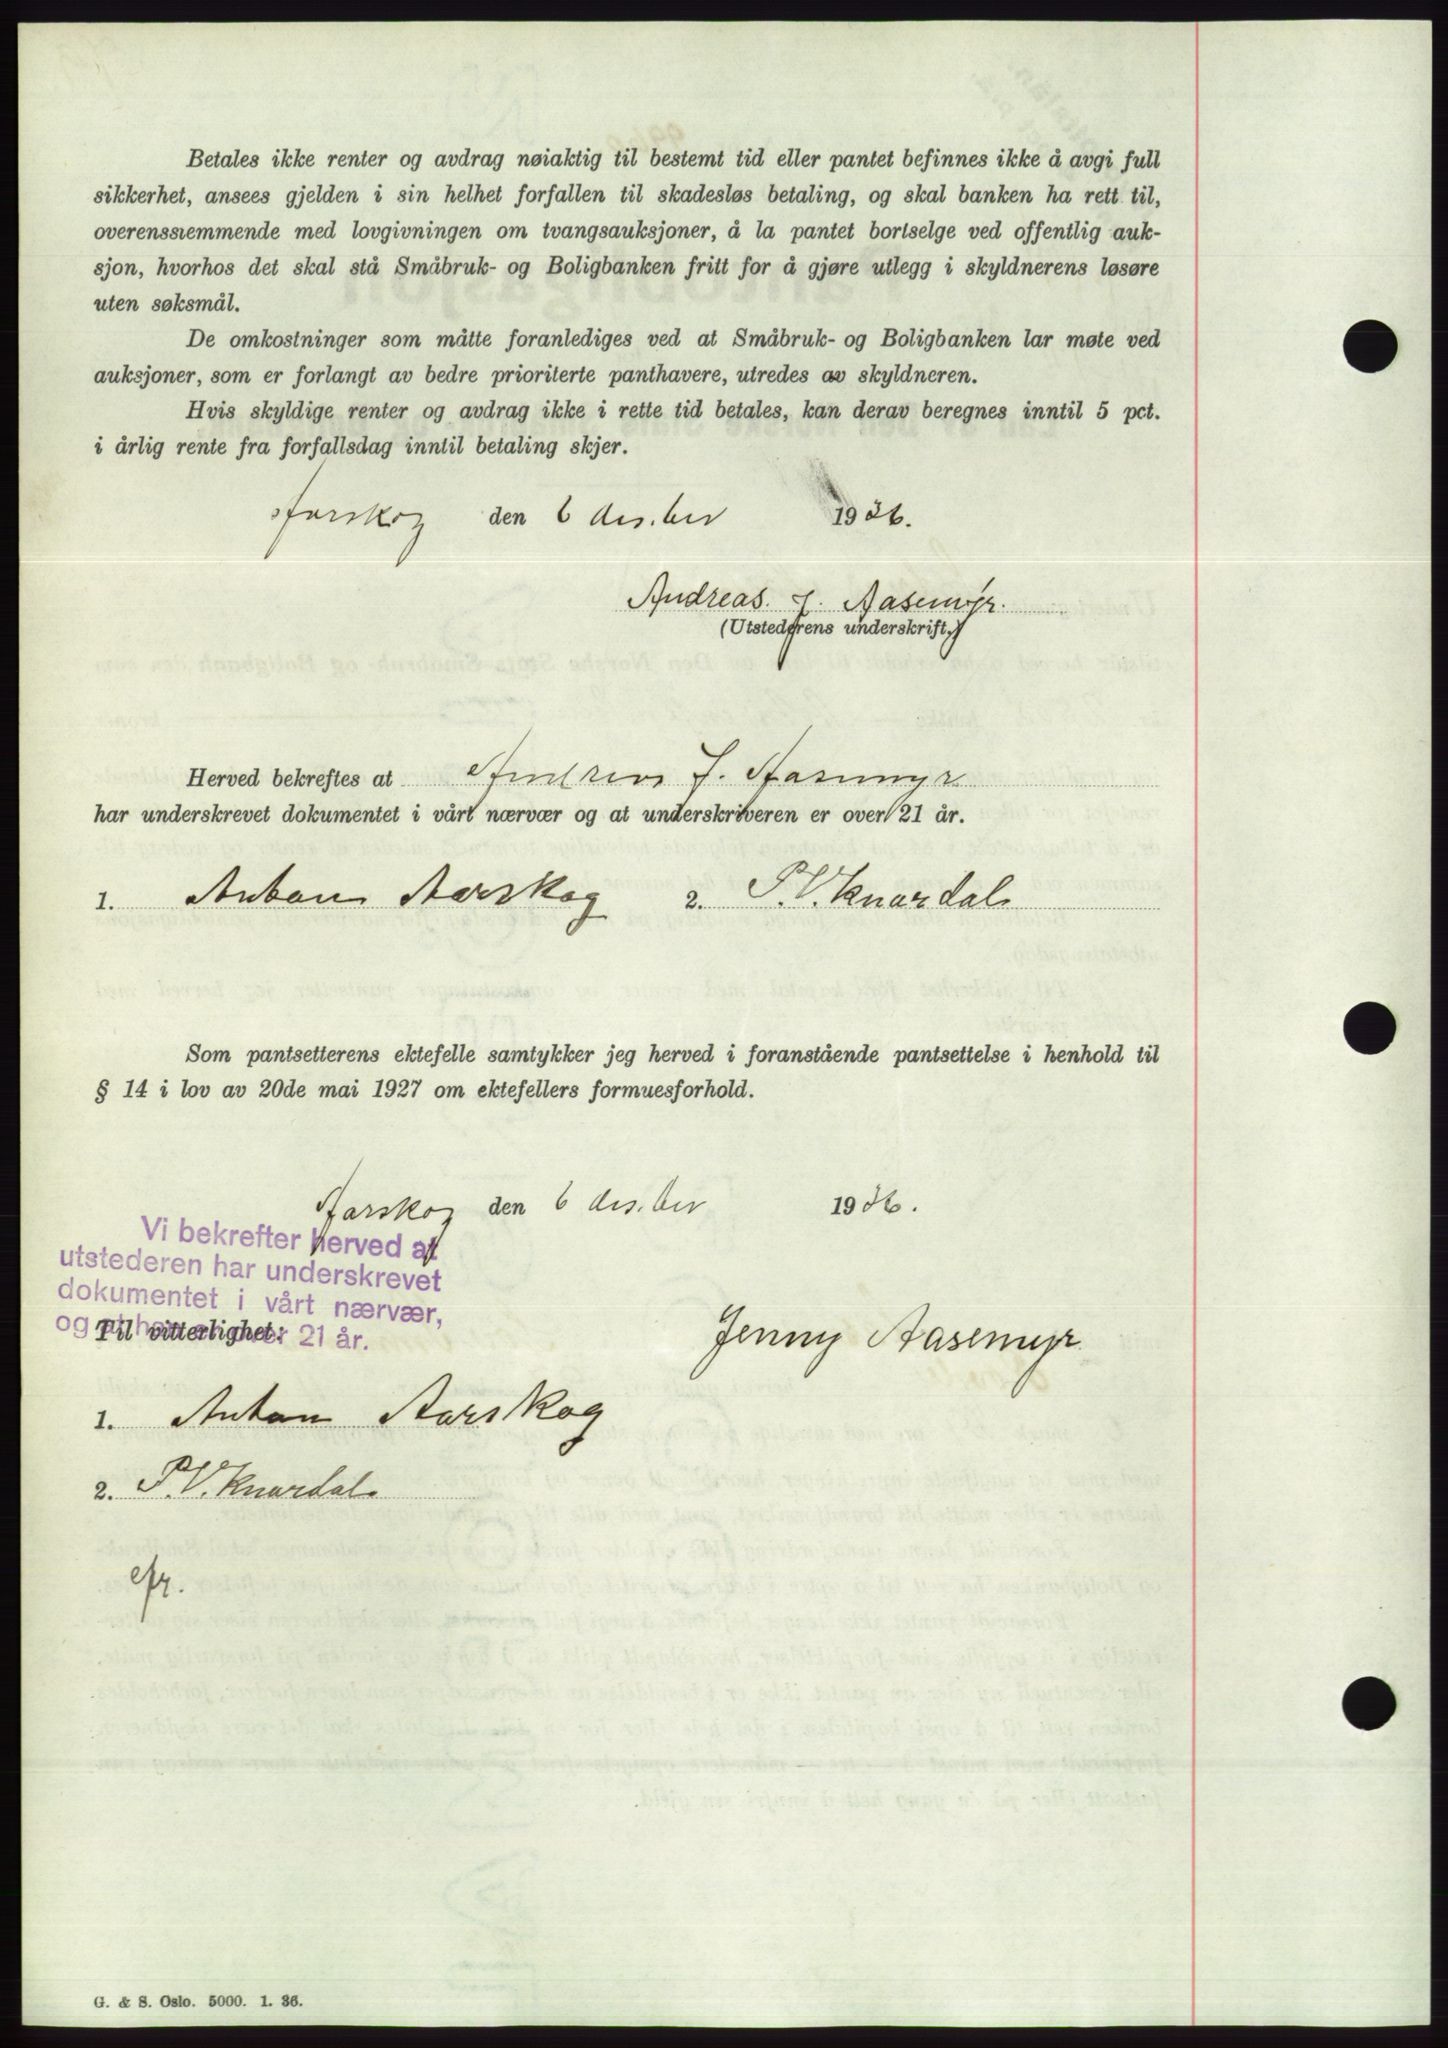 Betales ikke renter og avdrag nøiaktig til bestemt tid eller pantet befinnes ikke å avgi full
sikkerhet, ansees gjelden i sin helhet forfallen til skadesløs betaling, og skal banken ha rett til,
overensstemmende med lovgivningen om tvangsauksjoner, å la pantet bortselge ved offentlig auk-
sjon, hvorhos det skal stå Småbruk- og Boligbanken fritt for å gjøre utlegg i skyldnerens løsøre
uten søksmål.
De omkostninger som måtte foranlediges ved at Småbruk- og Boligbanken lar møte ved
auksjoner, som er forlangt av bedre prioriterte panthavere, utredes av skyldneren.
Hvis skyldige renter og avdrag ikke i rette tid betales, kan derav beregnes inntil 5 pct.
i årlig rente fra forfallsdag inntil betaling skjer.
Aarskog den 6 des.ber 1936.
Andreas J. Aasemyr.
(Utstederens underskrift.)
Herved bekreftes at Andreas J. Aasemyr
har underskrevet dokumentet i vårt nærvær og at underskriveren er over 21 år.
1. Anton Aarskog 2. P.V. Knardal
Som pantsetterens ektefelle samtykker jeg herved i foranstående pantsettelse i henhold til
§ 14 i lov av 20de mai 1927 om ektefellers formuesforhold.
Aarskog den 6 des.ber 1936.
Vi bekrefter herved at
utstederen har underskrevet
dokumentet i vårt nærvær,
og at han er over 21 år.
Til vitterlighet:
Jenny Aasemyr
1. Anton Aarskog
2. P.V. Knardal
efr.
G. & S. Oslo. 5000. 1. 36.